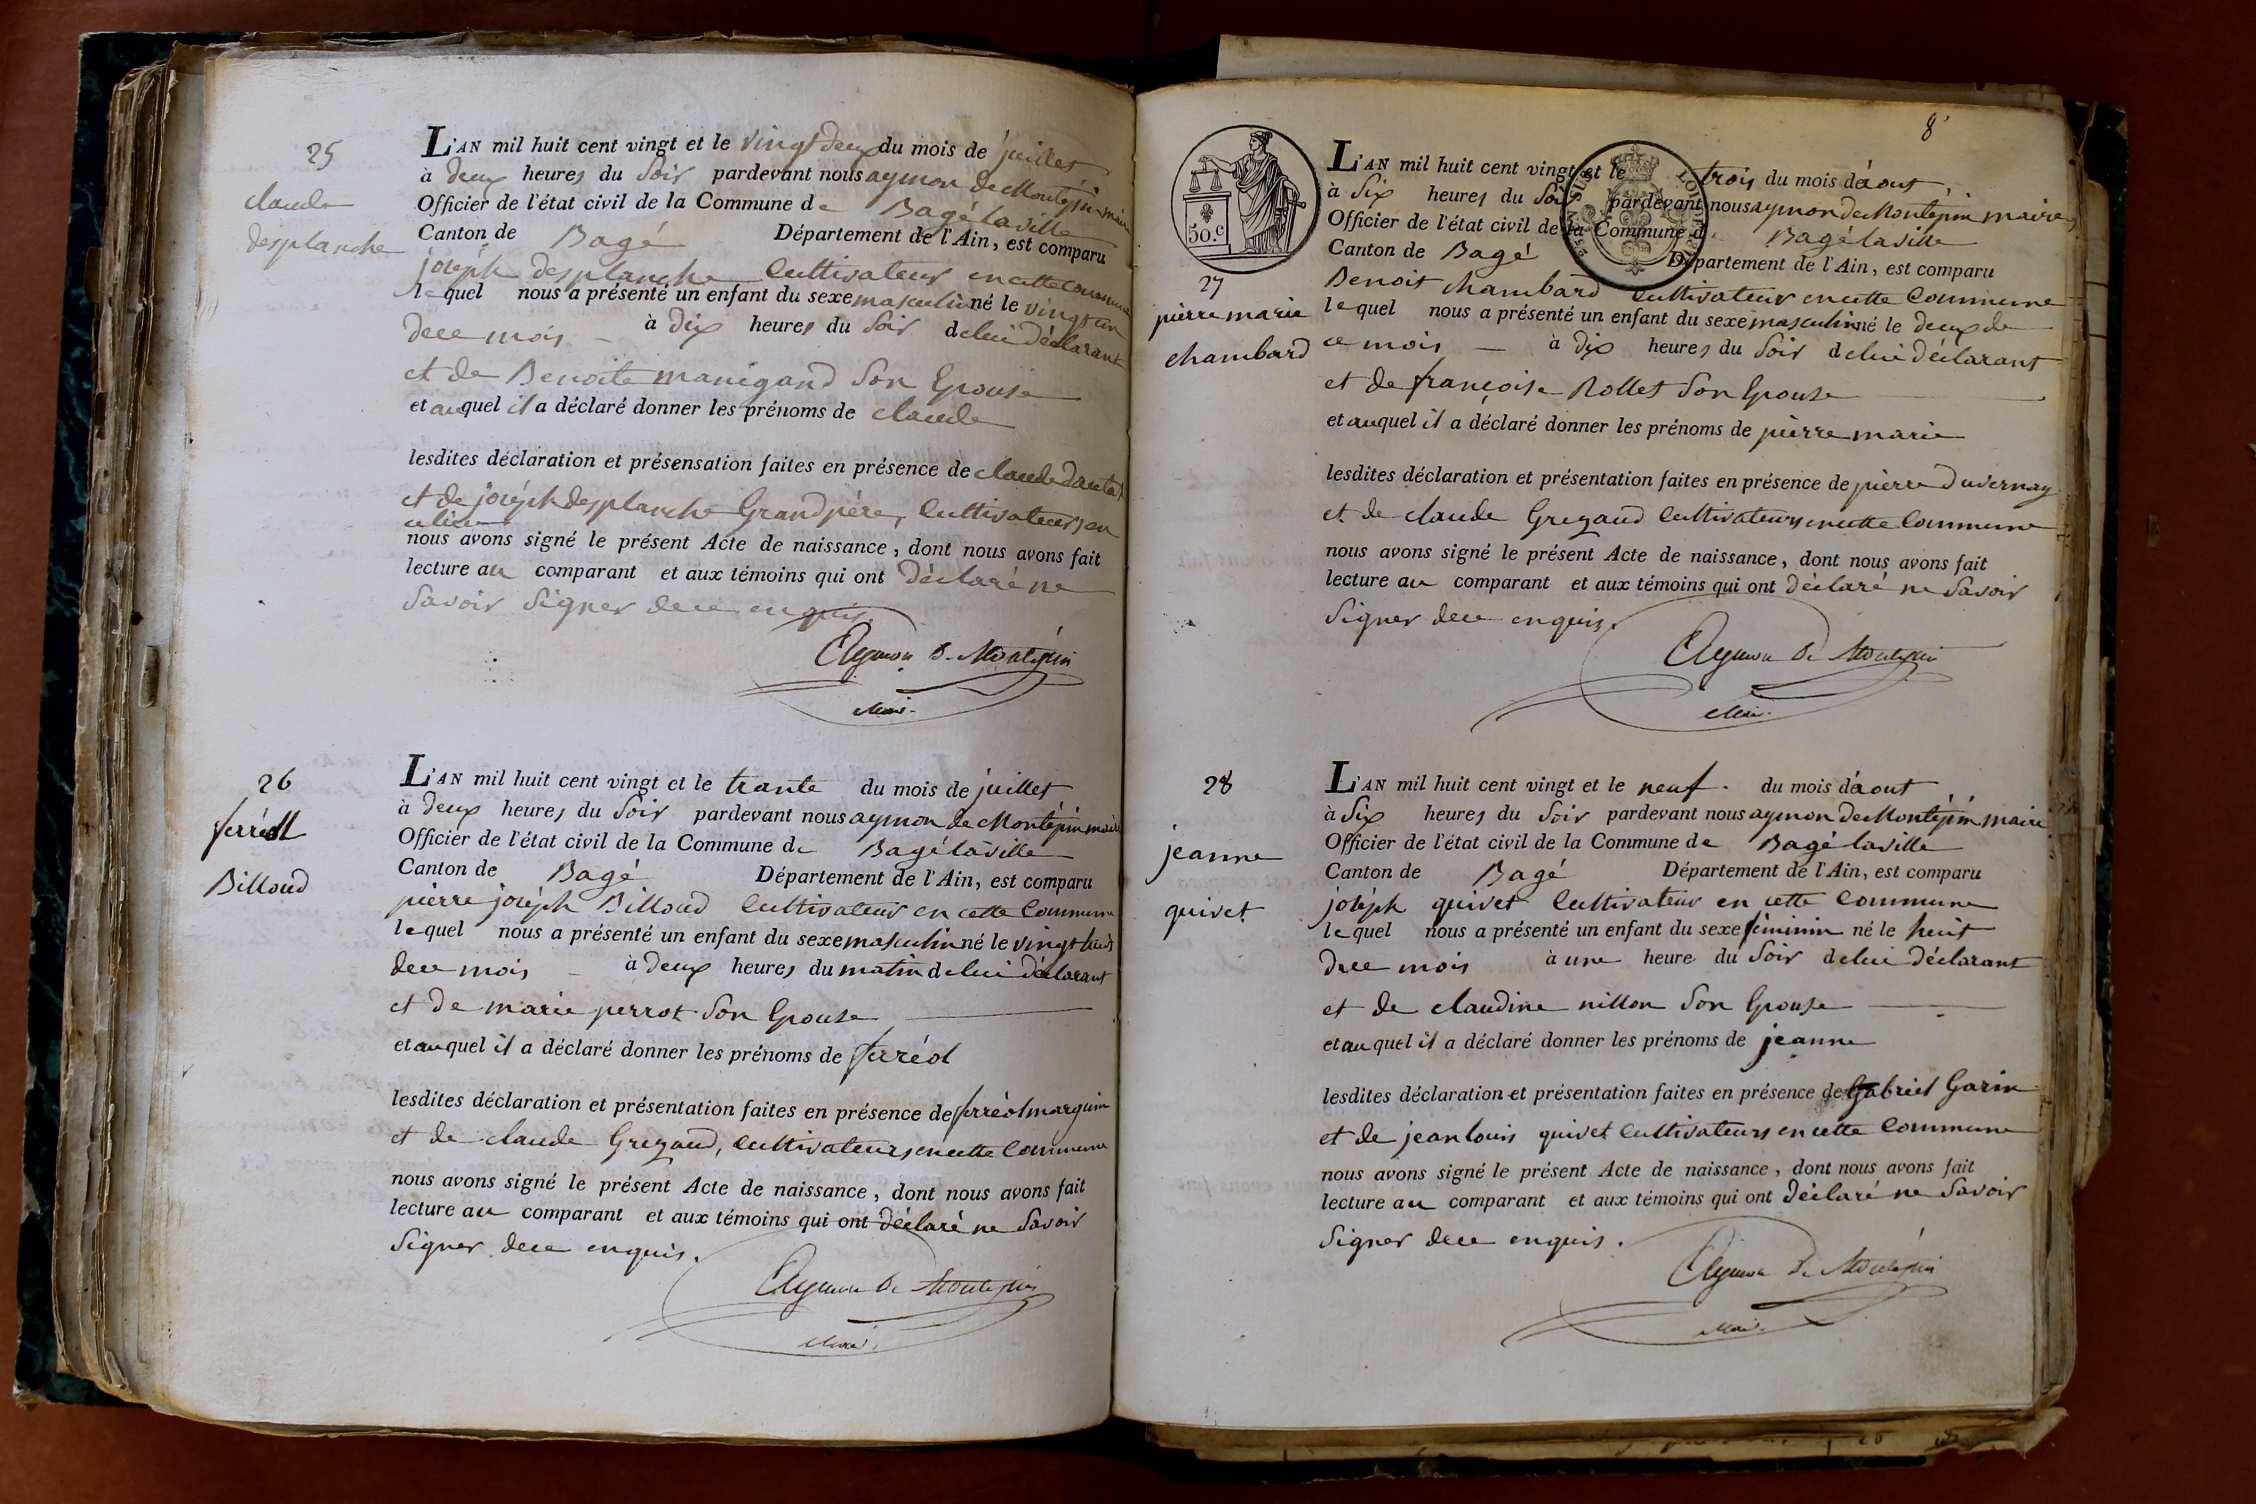 25
claude
desplanche
L'AN mil huit cent vingt et le vingt deux du mois de juillet
à deux heures du soir pardevant nous aymon de Montépin maire
Officier de l'état civil de la Commune de Bagé la ville
Canton de Bagé Département de l'Ain, est comparu
joséph desplanche Cultivateur en cette commune
lequel nous a présenté un enfant du sexe masculin né le vingt un
de ce mois à dix heures du soir de lui déclarant
et de Benoite manigand son Epouse
et auquel il a déclaré donner les prénoms de claude
lesdites déclaration et présensation faites en présence de claude
et de joséph desplanche Grand père, Cultivateurs en
nous avons signé le présent Acte de naissance, dont nous avons fait
lecture au comparant et aux témoins qui ont déclaré ne
savoir signer de ce enquis.
Aymon De Montépin
Maire
26
ferréol
Billoud
L'AN mil huit cent vingt et le trante du mois de juillet
à deux heures du soir pardevant nous aymon de Montépin maire
Officier de l'état civil de la Commune de Bagé la ville
Canton de Bagé Département de l'Ain, est comparu
pierre joséph Billoud Cultivateur en cette Commune
lequel nous a présenté un enfant du sexe masculin né le vingt huit
de ce mois à deux heures du matin de lui déclarant
et de marie perrot son Epouse
et auquel il a déclaré donner les prénoms de ferréol
lesdites déclaration et présentation faites en présence de ferréol marguin
et de claude Grezaud, Cultivateurs en cette Commune
nous avons signé le présent Acte de naissance, dont nous avons fait
lecture au comparant et aux témoins qui ont déclaré ne savoir
signer de ce enquis.
Aymon De Montépin
Maire
8
50.c
27
pierre marie
chambard
L'AN mil huit cent vingt et le trois du mois d'aout
à six heures du soir pardevant nous aymon de Montépin maire
Officier de l'état civil de la Commune de Bagé la ville
Canton de Bagé Département de l'Ain, est comparu
Benoit chambard Cultivateur en cette Commune
lequel nous a présenté un enfant du sexe masculin né le deux de
ce mois à dix heures du soir de lui déclarant
et de françoise Rollet son Epouse
et auquel il a déclaré donner les prénoms de pierre marie
lesdites déclaration et présentation faites en présence de pierre duvernay
et de claude Grezaud Cultivateurs en cette Commune
nous avons signé le présent Acte de naissance, dont nous avons fait
lecture au comparant et aux témoins qui ont déclaré ne savoir
signer de ce enquis.
Aymon De Montépin
Maire
28
jeanne
quivet
L'AN mil huit cent vingt et le neuf. du mois d'aout
à six heures du soir pardevant nous aymon de Montépin maire
Officier de l'état civil de la Commune de Bagé la ville
Canton de Bagé Département de l'Ain, est comparu
joséph quivet Cultivateur en cette Commune
lequel nous a présenté un enfant du sexe féminin né le huit
de ce mois à une heure du soir de lui déclarant
et de claudine nillon son Epouse
et auquel il a déclaré donner les prénoms de jeanne
lesdites déclaration et présentation faites en présence de Gabriel Garin
et de jean louis quivet Cultivateurs en cette Commune
nous avons signé le présent Acte de naissance, dont nous avons fait
lecture au comparant et aux témoins qui ont déclaré ne savoir
signer de ce enquis.
Aymon De Montépin
Maire